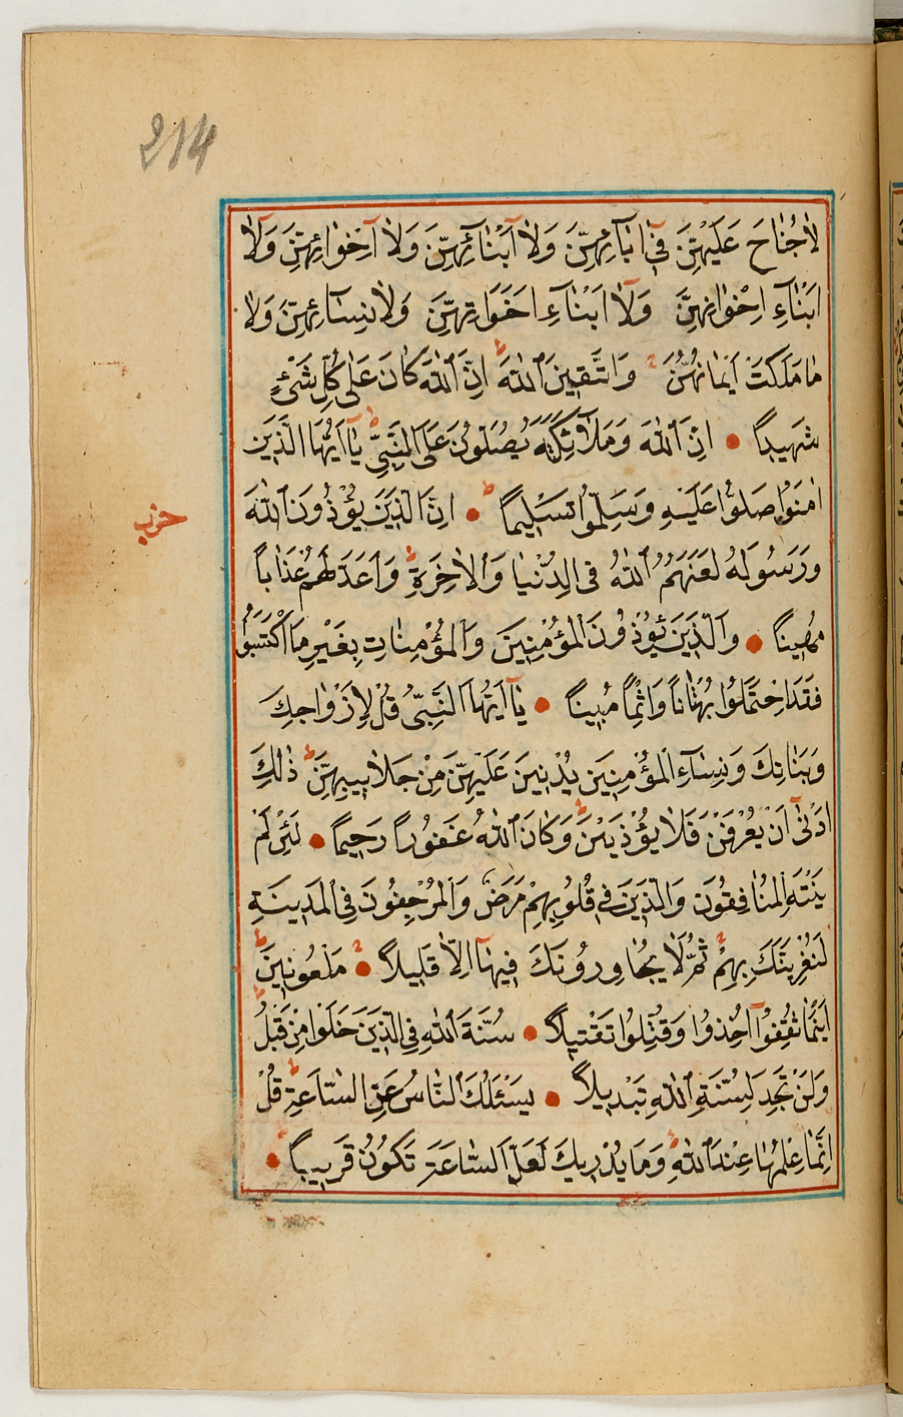 214
لَا جُنَاحَ عَلَيْهِنَّ فِٓى اٰبَٓائِهِنَّ وَلَٓا اَبْنَٓائِهِنَّ وَلَٓا اِخْوَانِهِنَّ وَلَٓا
اَبْنَٓاءِ اِخْوَانِهِنَّ وَلَٓا اَبْنَٓاءِ اَخَوَاتِهِنَّ وَلَا نِسَٓائِهِنَّ وَلَا
مَا مَلَكَتْ اَيْمَانُهُنَّ وَاتَّقِينَ اللّٰهَ اِنَّ اللّٰهَ كَانَ عَلٰى كُلِّ شَىْءٍ
شَهِيدًا اِنَّ اللّٰهَ وَمَلٰٓئِكَتَهُ يُصَلُّونَ عَلَى النَّبِىِّ يَٓا اَيُّهَا الَّذِينَ
اٰمَنُوا صَلُّوا عَلَيْهِ وَسَلِّمُوا تَسْلِيمًا اِنَّ الَّذِينَ يُؤْذُونَ اللّٰهَ
حزب
وَرَسُولَهُ لَعَنَهُمُ اللّٰهُ فِى الدُّنْيَا وَالْاٰخِرَةِ وَاَعَدَّ لَهُمْ عَذَابًا
مُهِينًا وَالَّذِينَ يُؤْذُونَ الْمُؤْمِنِينَ وَالْمُؤْمِنَاتِ بِغَيْرِ مَا اكْتَسَبُوا
فَقَدِ احْتَمَلُوا بُهْتَانًا وَاِثْمًا مُبِينًا يَٓا اَيُّهَا النَّبِىُّ قُلْ لِاَزْوَاجِكَ
وَبَنَاتِكَ وَنِسَٓاءِ الْمُؤْمِنِينَ يُدْنِينَ عَلَيْهِنَّ مِنْ جَلَابِيبِهِنَّ ذٰلِكَ
اَدْنٰٓى اَنْ يُعْرَفْنَ فَلَا يُؤْذَيْنَ وَكَانَ اللّٰهُ غَفُورًا رَحِيمًا لَئِنْ لَمْ
يَنْتَهِ الْمُنَافِقُونَ وَالَّذِينَ فِى قُلُوبِهِمْ مَرَضٌ وَالْمُرْجِفُونَ فِى الْمَدِينَةِ
لَنُغْرِيَنَّكَ بِهِمْ ثُمَّ لَا يُجَاوِرُونَكَ فِيهَٓا اِلَّا قَلِيلًا مَلْعُونِينَ
اَيْنَمَا ثُقِفُٓوا اُخِذُوا وَقُتِّلُوا تَقْتِيلًا سُنَّةَ اللّٰهِ فِى الَّذِينَ خَلَوْا مِنْ قَبْلُ
وَلَنْ تَجِدَ لِسُنَّةِ اللّٰهِ تَبْدِيلًا يَسْئَلُكَ النَّاسُ عَنِ السَّاعَةِ قُلْ
اِنَّمَا عِلْمُهَا عِنْدَ اللّٰهِ وَمَا يُدْرِيكَ لَعَلَّ السَّاعَةَ تَكُونُ قَرِيبًا